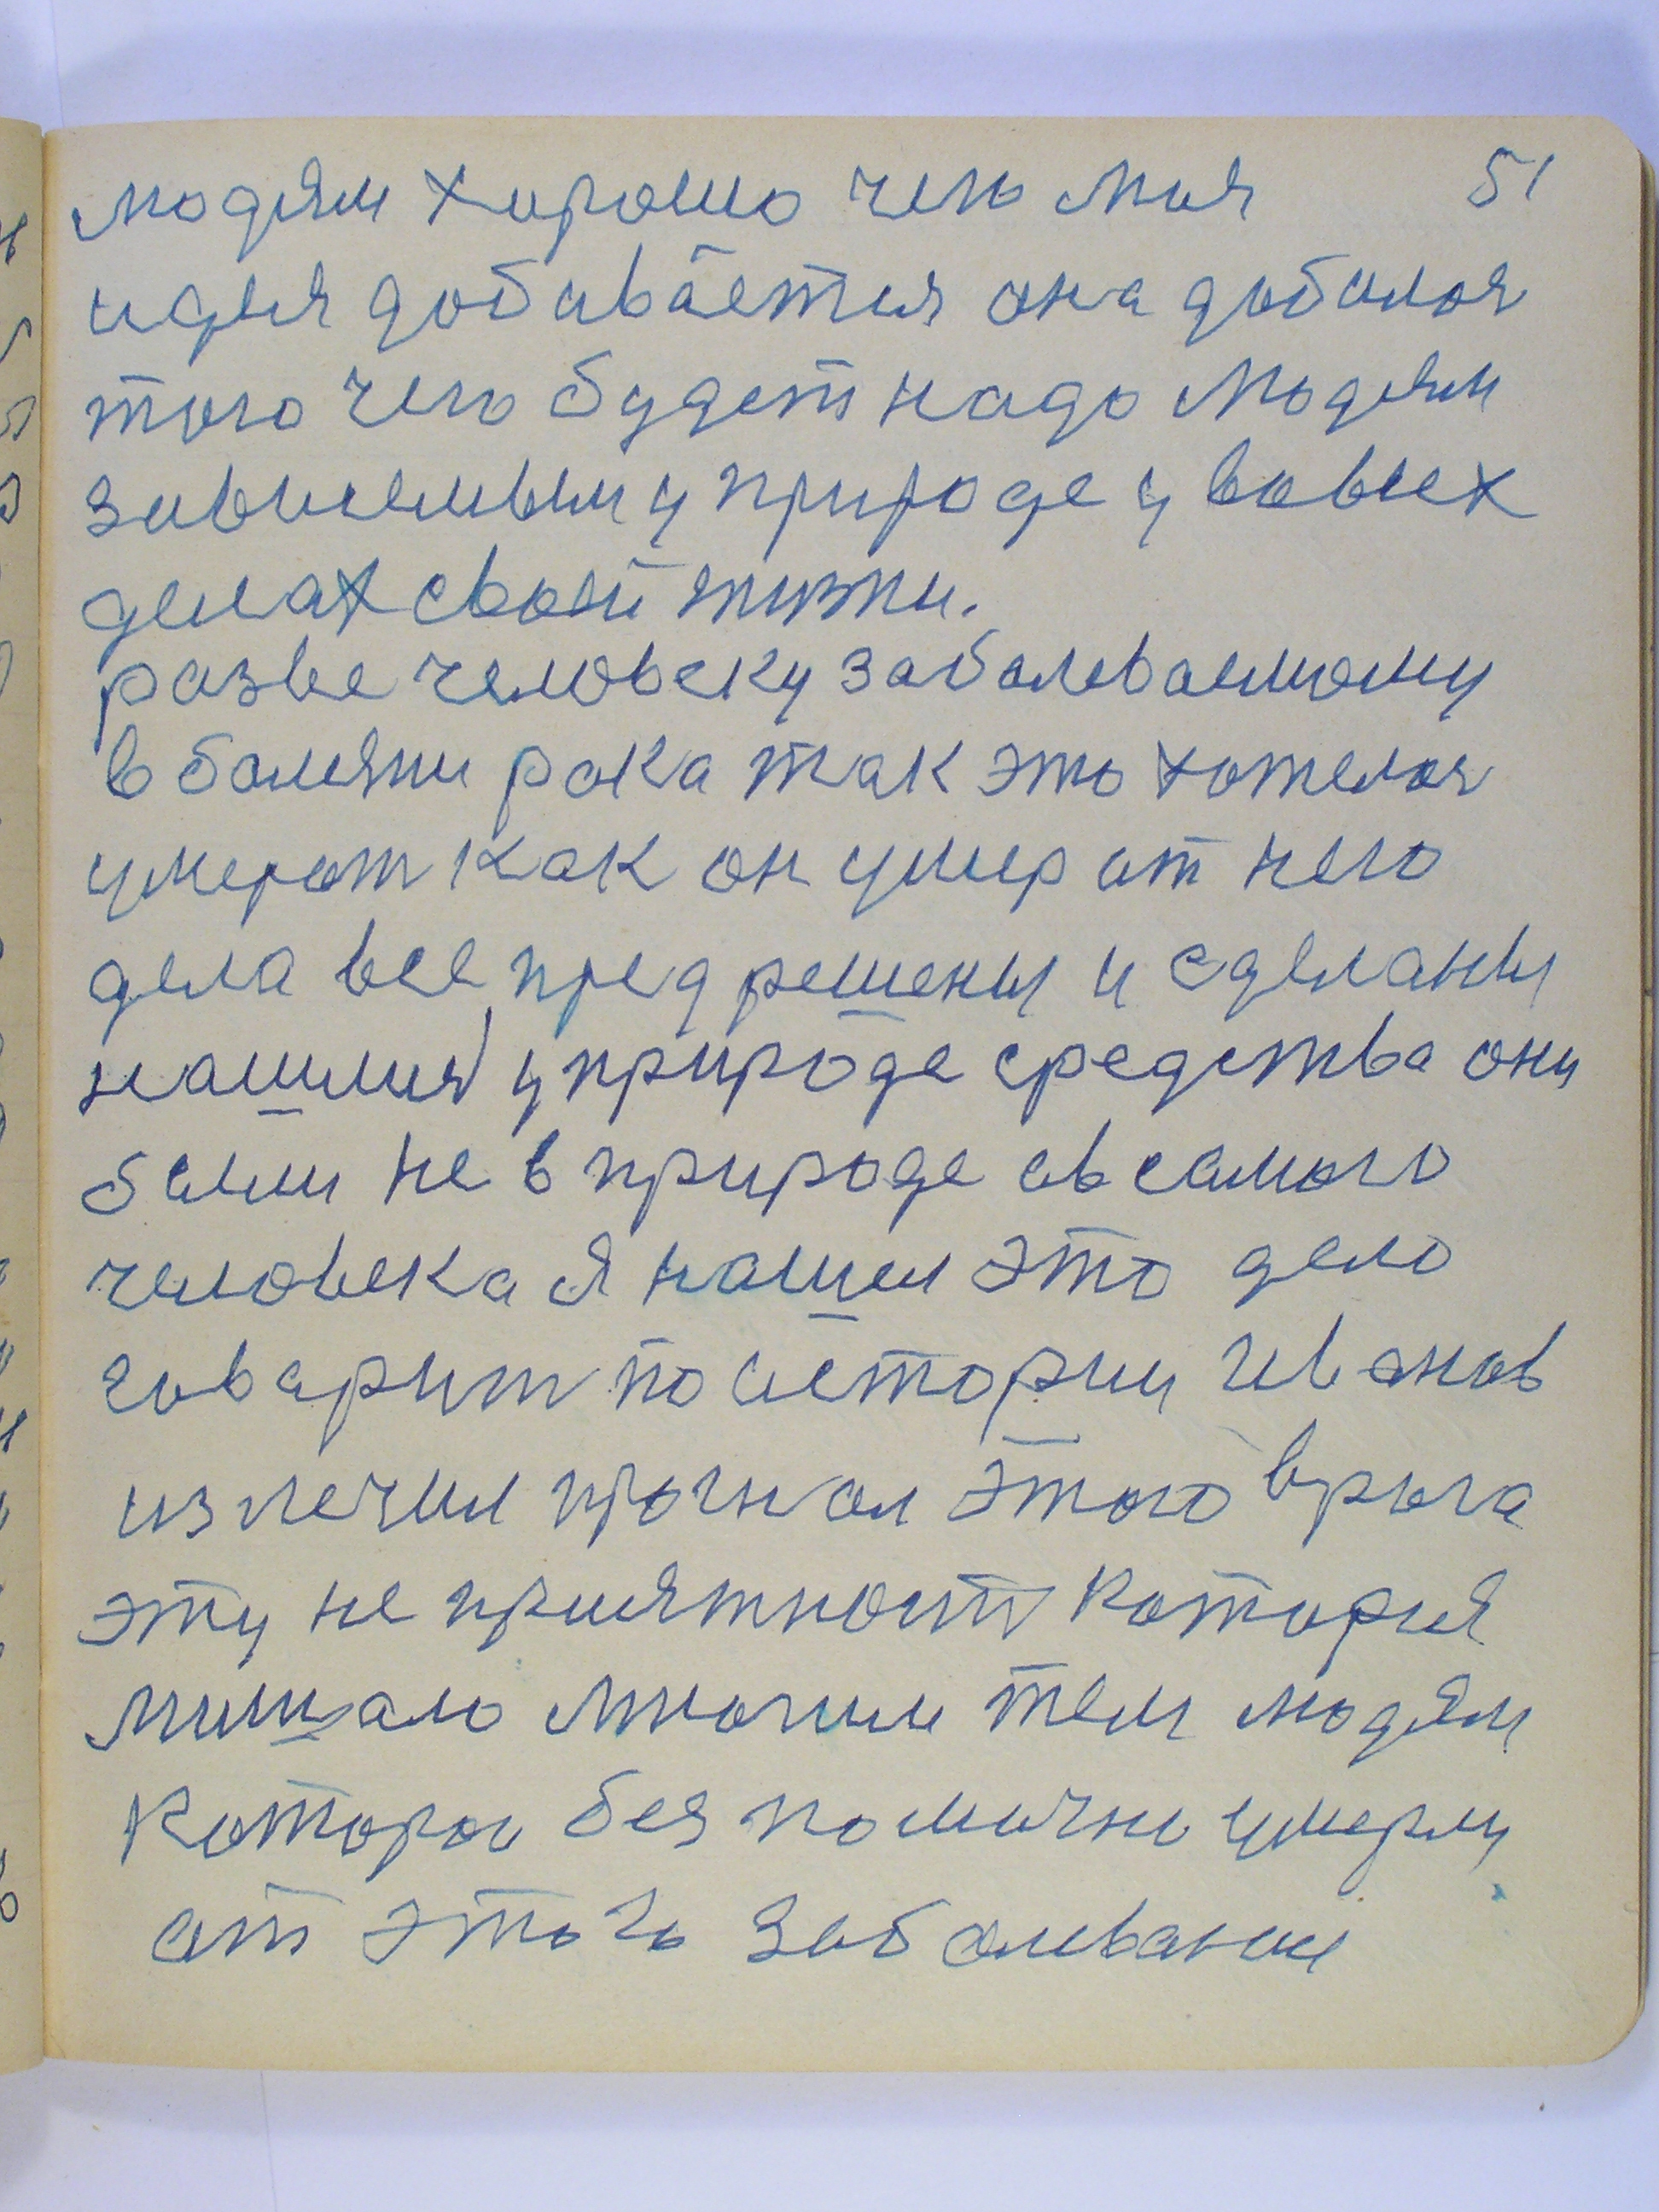 людям хорошо чего моя 51
идея добивается она добилася
того чего будет надо людям
зависемым у природе у вовсех
делах своей жизни.
разве человеку заболеваемому
в болезни рака так это хотелоя
умерат как он умер от него
дела все пред решены и сделаны
нашлися у природе средства они
были не в природе авсамого
человека я нашел это дело
говарит по истории Иванов
излечил прогнал этого врага
эту не приятност которая
мишало многим тем людям
которы без помични умерли
от этого заболивание